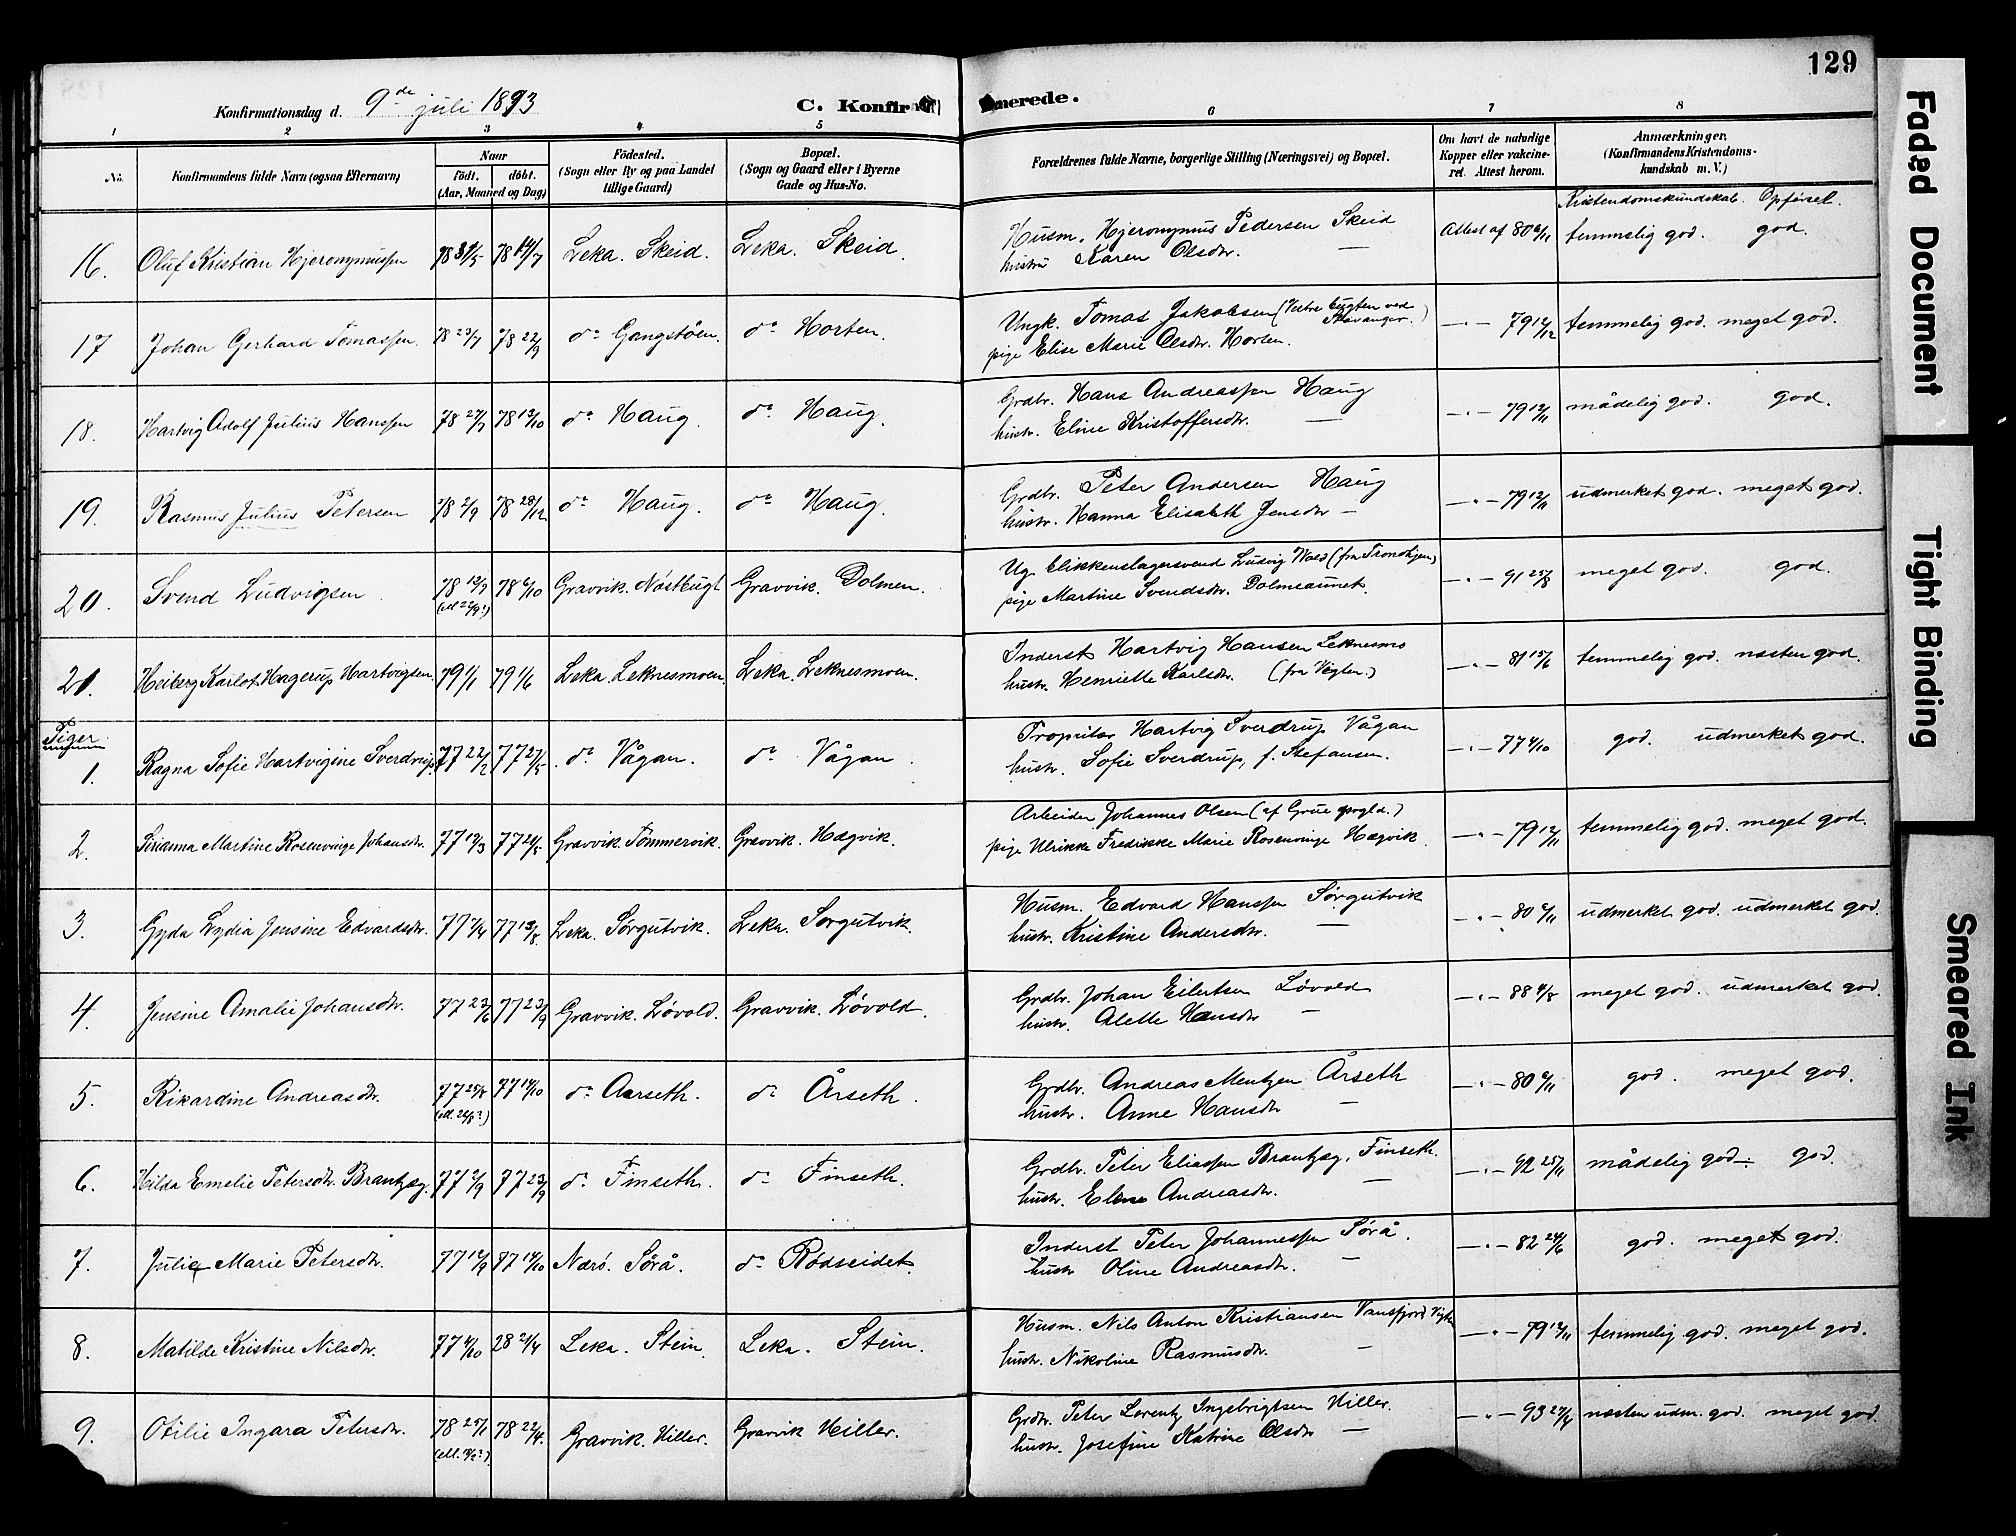 129
Konfirmationsdag d. 9de juli 1893
C. Konfirmerede.
1 2 3 4 5 6 7 8
No. Konfirmandens fulde Navn (ogsaa Efternavn) Naar födt. döbt. (Aar, Maaned og Dag) Födested. (Sogn eller By og paa Landet tillige Gaard) Bopæl. (Sogn og Gaard eller i Byerne Gade og Hus-No.
Forældrenes fulde Navne, borgerlige Stilling (Næringsvei) og Bopæl. Om havt de naturlige Kopper eller vakcineret. Attest herom. Anmærkninger. (Konfirmandens Kristendomskundskab m. V.)
Kristendomskundskab. Opførsel.
16. Oluf Kristian Hjeronymussen 78 31/5 78 14/7 Leka. Skeid. Leka. Skeid. Husm. Hjeronymus Pedersen Skeid Attest af 80 6/11 temmelig god. god.
hustru Karen Olsdtr. —
17 Johan Gerhard Tomassen 78 23/7 78 22/9 do Gangstøen. do Horten. Ungk. Tomas Jakobsen (Vestre bugten ved Stavanger.) —"— 79 12/12 temmelig god. meget god.
pige Elise Marie Olsdtr. Horten.
18. Hartvig Adolf Julius Hanssen 78 27/7 78 13/10 do Haug. do Haug. Grdbr. Hans Andreassen Haug —"— 79 12/11 mådelig god. god.
hustr. Eline Kristoffersdtr. —
19. Rasmus Julius Petersen 78 2/9 78 28/12 do Haug. do Haug. Grdbr. Peter Andersen Haug —"— 79 12/11 udmerket god. meget god.
hustr. Hanna Elisabeth Jensdtr —
20. Svend Ludvigsen 78 12/9 78 6/10 Gravvik. Nøstbugt Gravvik. Dolmen. Ug. blikkenslagersvend Ludvig Wold (fra Trondhjem) —"— 91 25/8 meget god. god.
(ell 22/9?) pige Martine Svendsdtr. Dolmeaunet.
21. Heiberg Karlot Hagerup Hartvigsen 79 1/1 79 1/6 Leka. Leknesmoen. Leka. Leknesmoen. Inderst Hartvig Hansen Leknesmo —"— 81 15/6 temmelig god. næsten god.
hustr. Henriette Karlsdtr. (fra Vegten.)
Piger.
1. Ragna Sofie Hartvigine Sverdrup. 77 22/2 77 27/5 do Vågan. do Vågan. Proprietær Hartvig Sverdrup Vågan —"— 77 4/10 god. udmerket god.
hustr. Sofie Sverdrup, f. Stefansen.
2. Sirianna Martine Rosenvinge Johansdtr. 77 12/3 77 21/5 Gravvik. Tømmervik. Gravvik. Hægvik. Arbeider Johannes Olsen (af Grue prgld.) —"— 79 12/11 temmelig god. meget god.
pige Ulrikke Fredrikke Marie Rosenvinge Hægvik.
3. Gyda Lydia Jensine Edvardsdtr. 77 7/4 77 13/5 Leka. Sørgutvik. Leka. Sørgutvik. Husm. Edvard Hanssen Sørgutvik —"— 80 6/11 udmerket god. udmerket god.
hustr. Kristine Andersdtr. —
4. Jensine Amalie Johansdtr. 77 23/6 77 23/9 Gravvik. Løvold. Gravvik. Løvold. Grdbr. Johan Eilertsen Løvold —"— 88 4/8 meget god. udmerket god.
hustr. Alette Hansdtr —
5. Rikardine Andreasdtr. 77 25/8 77 14/10 do Aarseth. do Årseth. Grdbr. Andreas Mentzen Årseth —"— 80 6/11 god. meget god.
(ell. 26/8?) hustr. Anne Hansdtr —
6. Hilda Emelie Petersdtr. Brantzæg. 77 2/9 77 23/9 do Finseth. do Finseth. Grdbr. Peter Eliassen Brantzæg, Finseth. —"— 92 25/11 mådelig god. god.
hustr. Elene Andreasdtr. —
7. Julie Marie Petersdtr. 77 12/9 77 14/10 Nærø. Sørå. do Rødseidet. Inderst Peter Johannessen Sørå. —"— 82 24/6 god. meget god.
hustr Oline Andreasdtr. —
8. Matilde Kristine Nilsdtr. 77 4/10 28 21/4 Leka. Stein. Leka. Stein. Husm. Nils Anton Kristiansen Vansfjord —"— 79 12/11 temmelig god. meget god.
hustr. Nikoline Rasmusdtr. —
9. Otilie Ingara Petersdtr. 78 25/1 78 22/4. Gravvik. Hiller. Gravvik Hiller. Grdbr. Peter Lorentz Ingebrigtsen Hiller. —"— 93 27/4 næsten udm. god. meget god.
hustr. Josefine Katrine Olsdtr —
Faded Document
Tight Binding
Smeared Ink